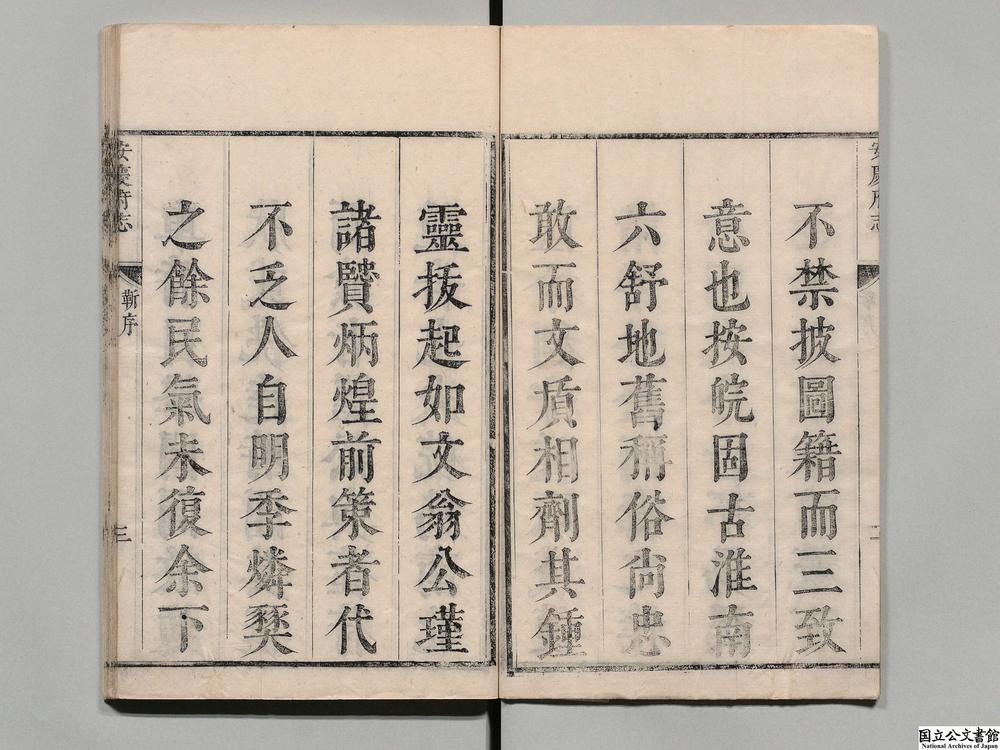 安慶府志
不禁披圖籍而三致
意也按皖固古淮南
六舒地舊稱俗尚忠
敢而文質相劑其鍾
靈拔起如文翁公瑾
諸賢炳煌前策者代
不乏人自明季燐熒
之餘民氣未復余下
安慶府志
靳序
三
国立公文書館
National Archives of Japan